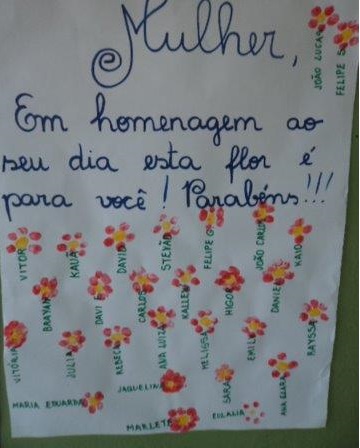 Mulher,
Em homenagem ao
seu dia esta flor é
para você! Parabéns!!!
JOÃO LUCAS
FELIPE S.
VITOR
KAUÃ
DAVID
STEVÃO
FELIPE G.
JOÃO CARLOS
KAIO
BRAYAN
DAVI F.
CARLOS
KALLEN
HIGOR
DANIEL
VITÓRIA
JULIA
REBECA
ANA LUIZA
MELISSA
EMILY
RAYSSA
MARIA EDUARDA
JAQUELINE
SARA
ANA CLARA
MARLETE
EULALIA